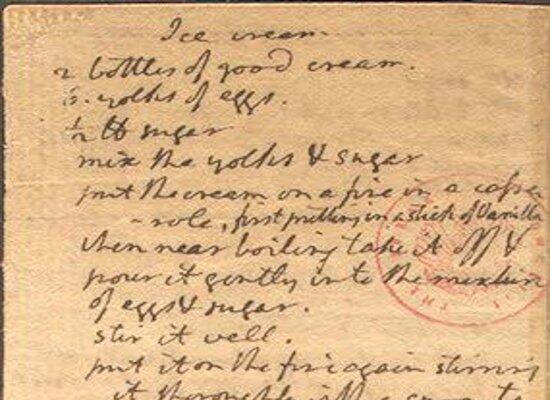 Ice cream.
2 bottles of good cream.
6. yolks of eggs.
½ ℔ sugar
mix the yolks & sugar
put the cream on a fire in a casse
-role, first putting in a stick of Vanilla.
when near boiling take it off &
pour it gently into the mixture
of eggs & sugar.
stir it well.
put it on the fire again stirring
it thoroughly with a spoon to